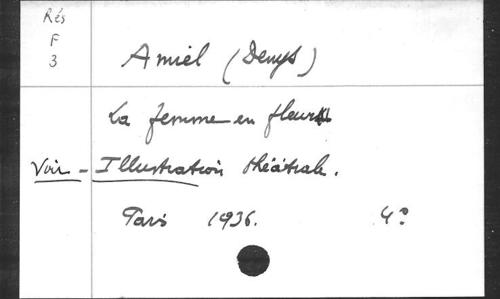 Rés
F
3
Amiel (Denys)
La femme en fleur
Voir - Illustration théâtrale.
Paris 1936. 4º